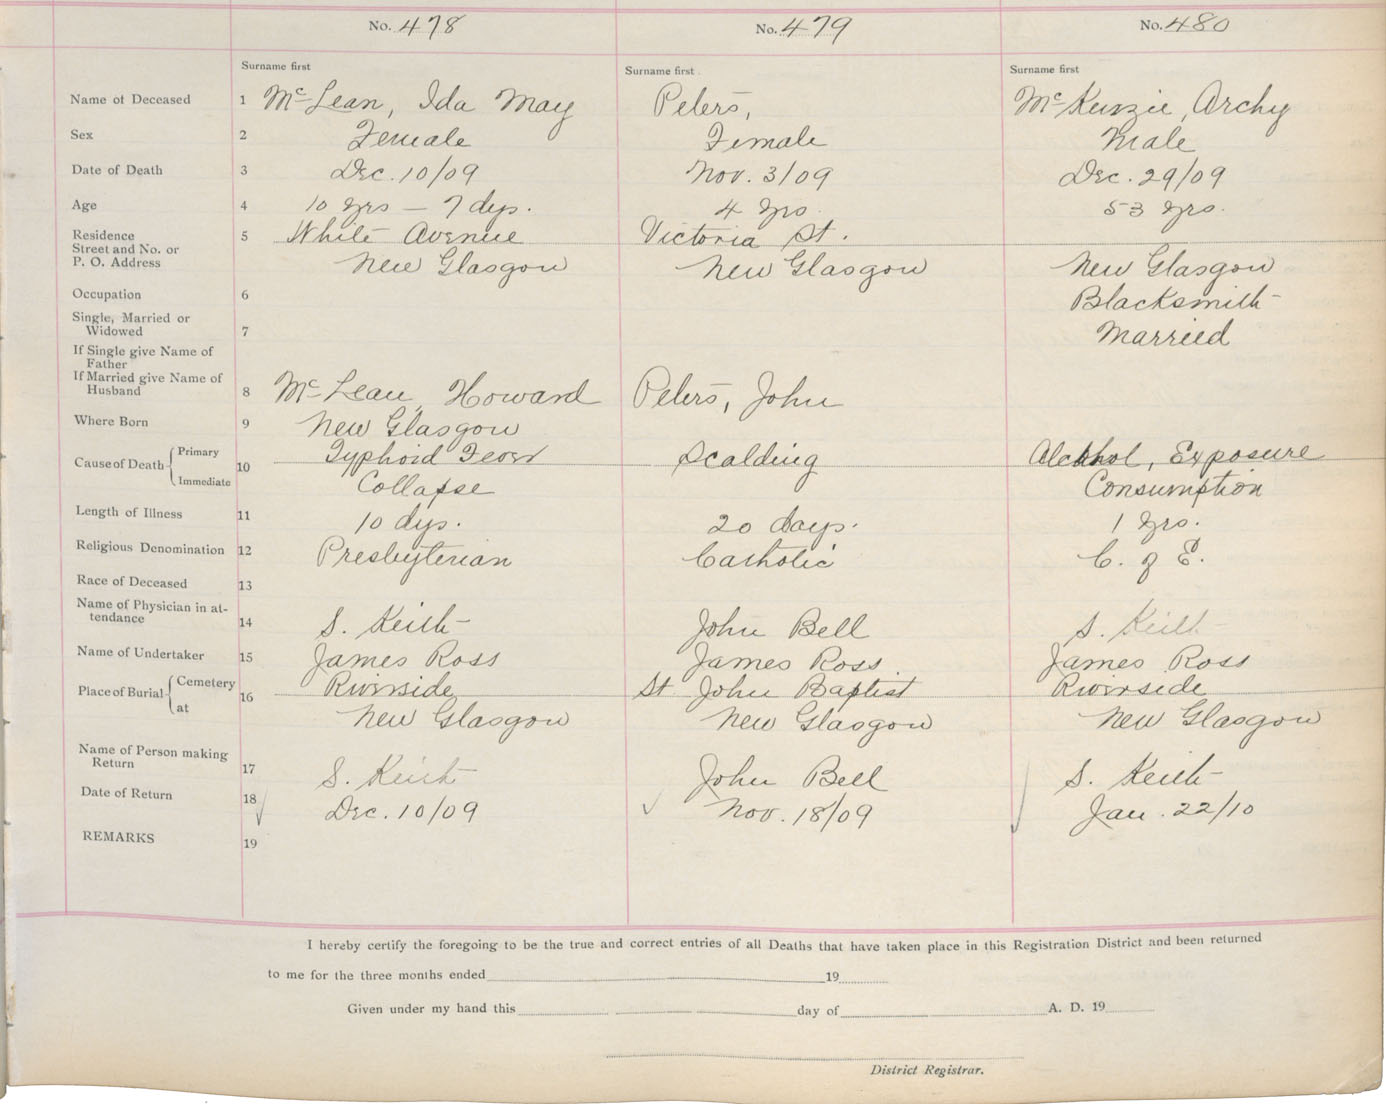 No. 478 No. 479 No. 480
Surname first Surname first Surname first
Name of Deceased 1 McLean, Ida May Peters, McKenzie, Archy
Sex 2 Female Female Male
Date of Death 3 Dec. 10/09 Nov. 3/09 Dec. 29/09
Age 4 10 yrs – 7 dys. 4 yrs 53 yrs.
Residence 5 White Avenue Victoria St.
Street and No. or
P. O. Address New Glasgow New Glasgow New Glasgow
Occupation 6 Blacksmith
Single, Married or
Widowed 7 Married
If Single give Name of
Father
If Married give Name of
Husband 8 McLean, Howard Peters, John
Where Born 9 New Glasgow
Cause of Death Primary 10 Typhoid Fever Scalding Alcohol, Exposure
Immediate Collapse Consumption
Length of Illness 11 10 dys. 20 days. 1 yrs.
Religious Denomination 12 Presbyterian Catholic C. of E.
Race of Deceased 13
Name of Physician in at-
tendance 14 S. Keith John Bell S. Keith
Name of Undertaker 15 James Ross James Ross James Ross
Place of Burial Cemetery 16 Riverside St John Baptist Riverside
at New Glasgow New Glasgow New Glasgow
Name of Person making
Return 17 S. Keith John Bell S. Keith
Date of Return 18 Dec. 10/09 Nov. 18/09 Jan. 22/10
REMARKS 19
I hereby certify the foregoing to be the true and correct entries of all Deaths that have taken place in this Registration District and been returned
to me for the three months ended 19
Given under my hand this day of A. D. 19
District Registrar.